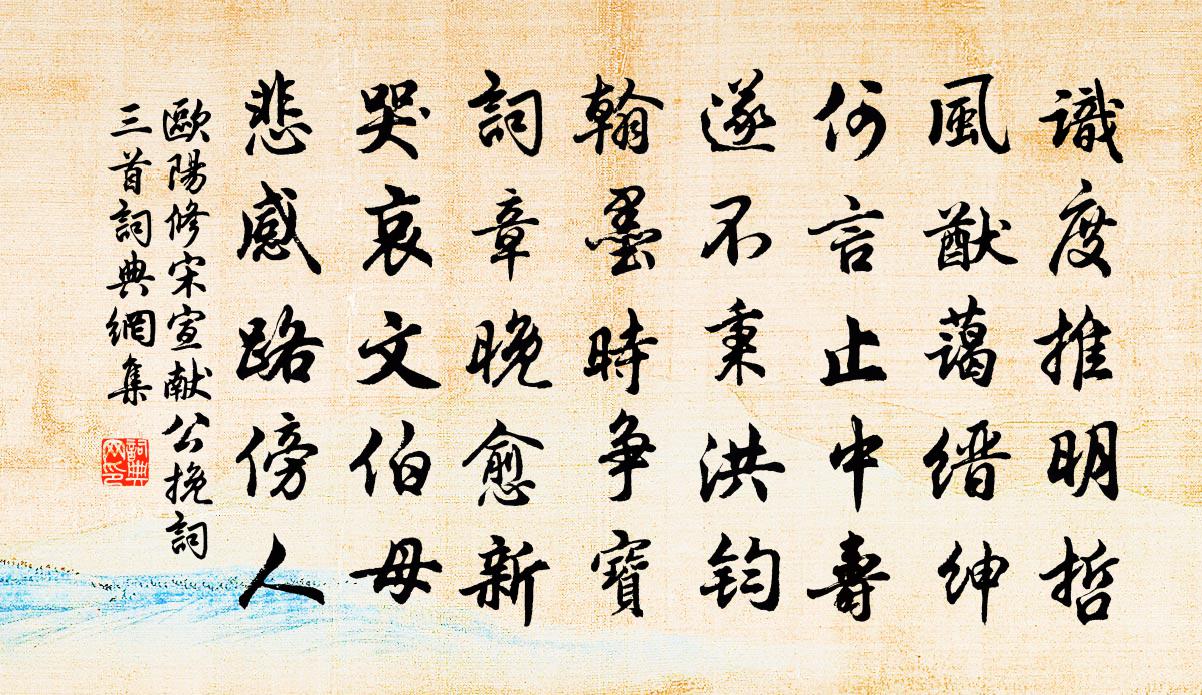 識度推明哲
風猷藹缙紳
何言止中壽
遂不秉洪鈞
翰墨時争寶
詞章晚愈新
哭哀文伯母
悲感路傍人
歐陽修宋宣献公挽詞
三首詞典網集
詞典
网印